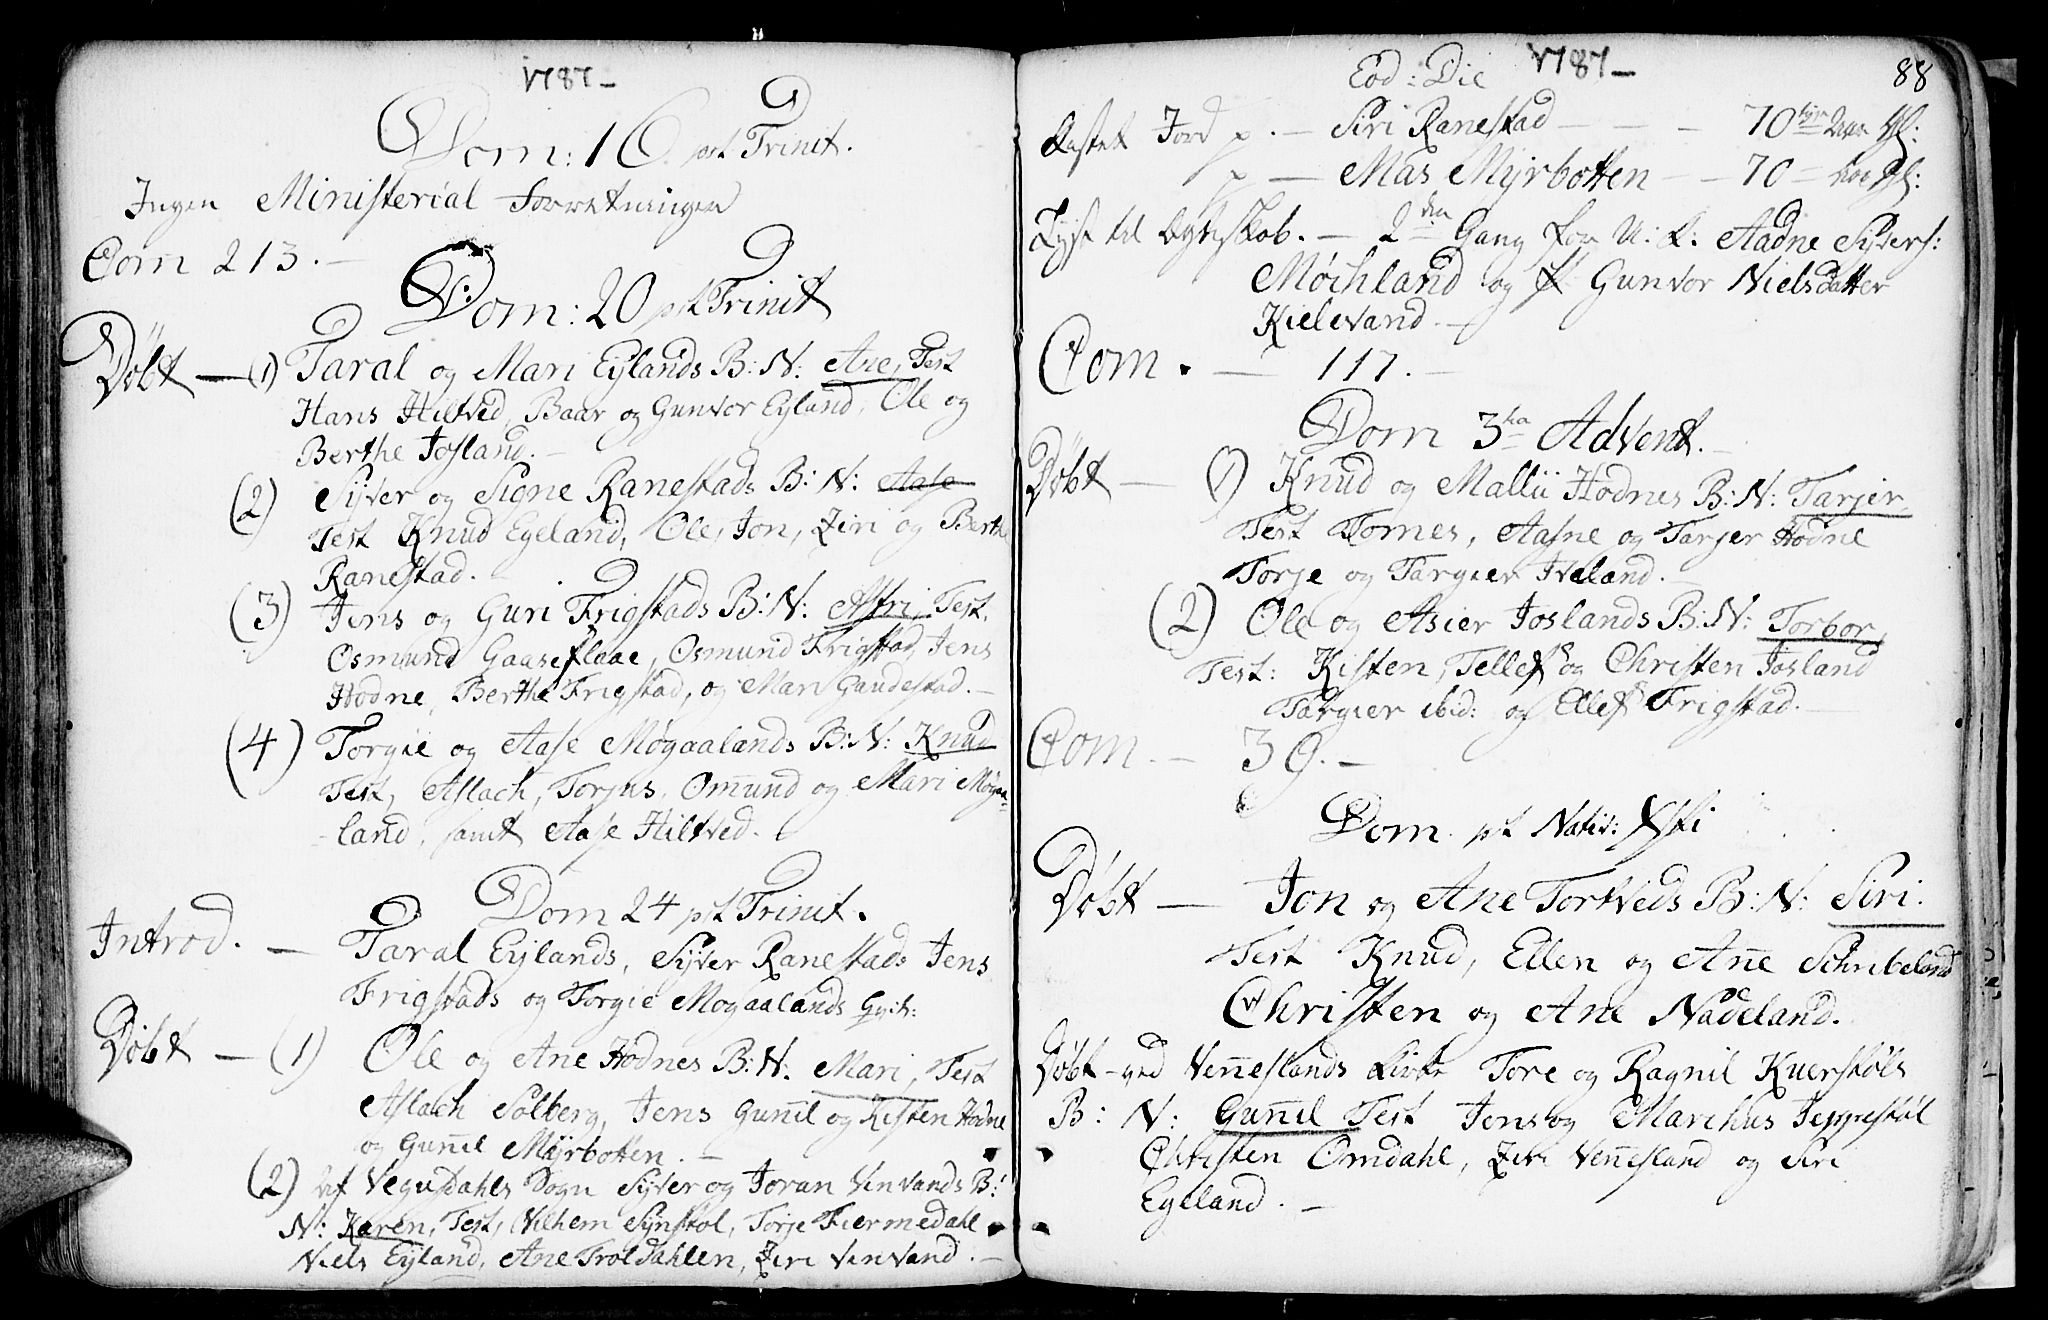 1787 –
Dom: 16 pst Trinit.
Ingen Ministerial forretninger
Com 213. –
Dom: 20 pst Trinit
Døbt – (1) Taral og Mari Eylands B: N: Ane, Test
Hans Hiltved, Baar og Gunvor Eyland, Ole og
Berthe Josland. –
(2) Syver og Signe Ranestads B: N: Aase
Test Knud Egeland, Ole, Jon, Ziri og Berthe
Ranestad. –
(3) Jens og Guri Frigstads B: N: Astri, Test.
Osmund Gaaseflaae, Osmund Frigstad, Jens
Hodne, Berthe Frigstad, og Mari Gaudestad. –
(4) Torgie og Aase Møgaalands B: N: Knud
Test, Aslach, Torjus, Omund og Mari Møgaa-
land, samt Aase Hiltved.
Dom 24 pst Trinit.
Introd. – Taral Eylands, Syver Ranestads Jens
Frigstads og Torgie Mogaalands
Døbt – (1) Ole og Ane Hodnes B: N. Mari, Test
Aslach Solberg, Jens Gunnil og Kisten Hodne
og Gunnil Myrbotten. –
(2) af Vegusdahls Sogn Syver og Joran Vinvands B:
N: Karen, Test, Vilhem Synstol, Torje Fiermedahl
Niels Eyland, Ane Troldahlen, Ziri Vinvand. –
1787 –
88
Eod: Die
Kastet Jord p. – Siri Ranestad – – – 70
p – Mas Myrbotten – – 70
Lyst til Egteskob. – 2den Gang for U: K: Aadne Syvers:
Møichland og P Gunvor Nielsdatter
Kielevand. –
Com. – 117. –
Dom 3tia Advent. –
Døbt – 1) Knud og Mallii Hodnes B: N: Tarjer,
Test Tornes, Aasne og Tarjer Hodne
Torje og Targier Iveland. –
(2) Ole og Asier Joslands B: N: Torbor,
Test: Kisten, Tellef og Christen Josland
Targier ibid: og Ellef Frigstad. –
Com. – 39. –
Dom. pst Nativ: Xsti
Døbt – Jon og Ane Tortveds B: N: Siri.
Test Knud, Ellen og Ane Schribeland
Christen og Ane Nadeland.
Døbt – ved Venneslands Kirke Tore og Ragnil Kuerstøls
B: N: Gunnil Test Jens og Marthus Jeppestøl
Christen Omdahl, Ziri Vennesland og Siri
Egeland. –